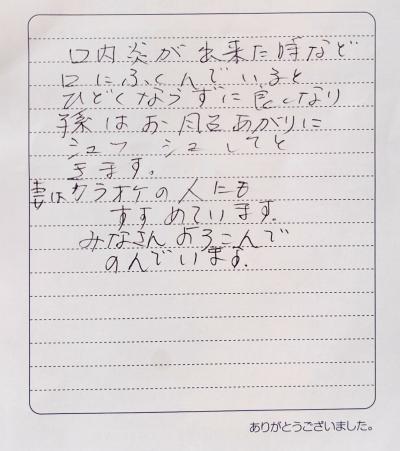 口内炎が出来た時など
口にふくんでいると
ひどくならずに良しなり
孫はお風呂あがりに
シュッ シュしてと
きます。
妻はカラオケの人にも
すすめています。
みなさんよろこんで
のんでいます。
ありがとうございました。